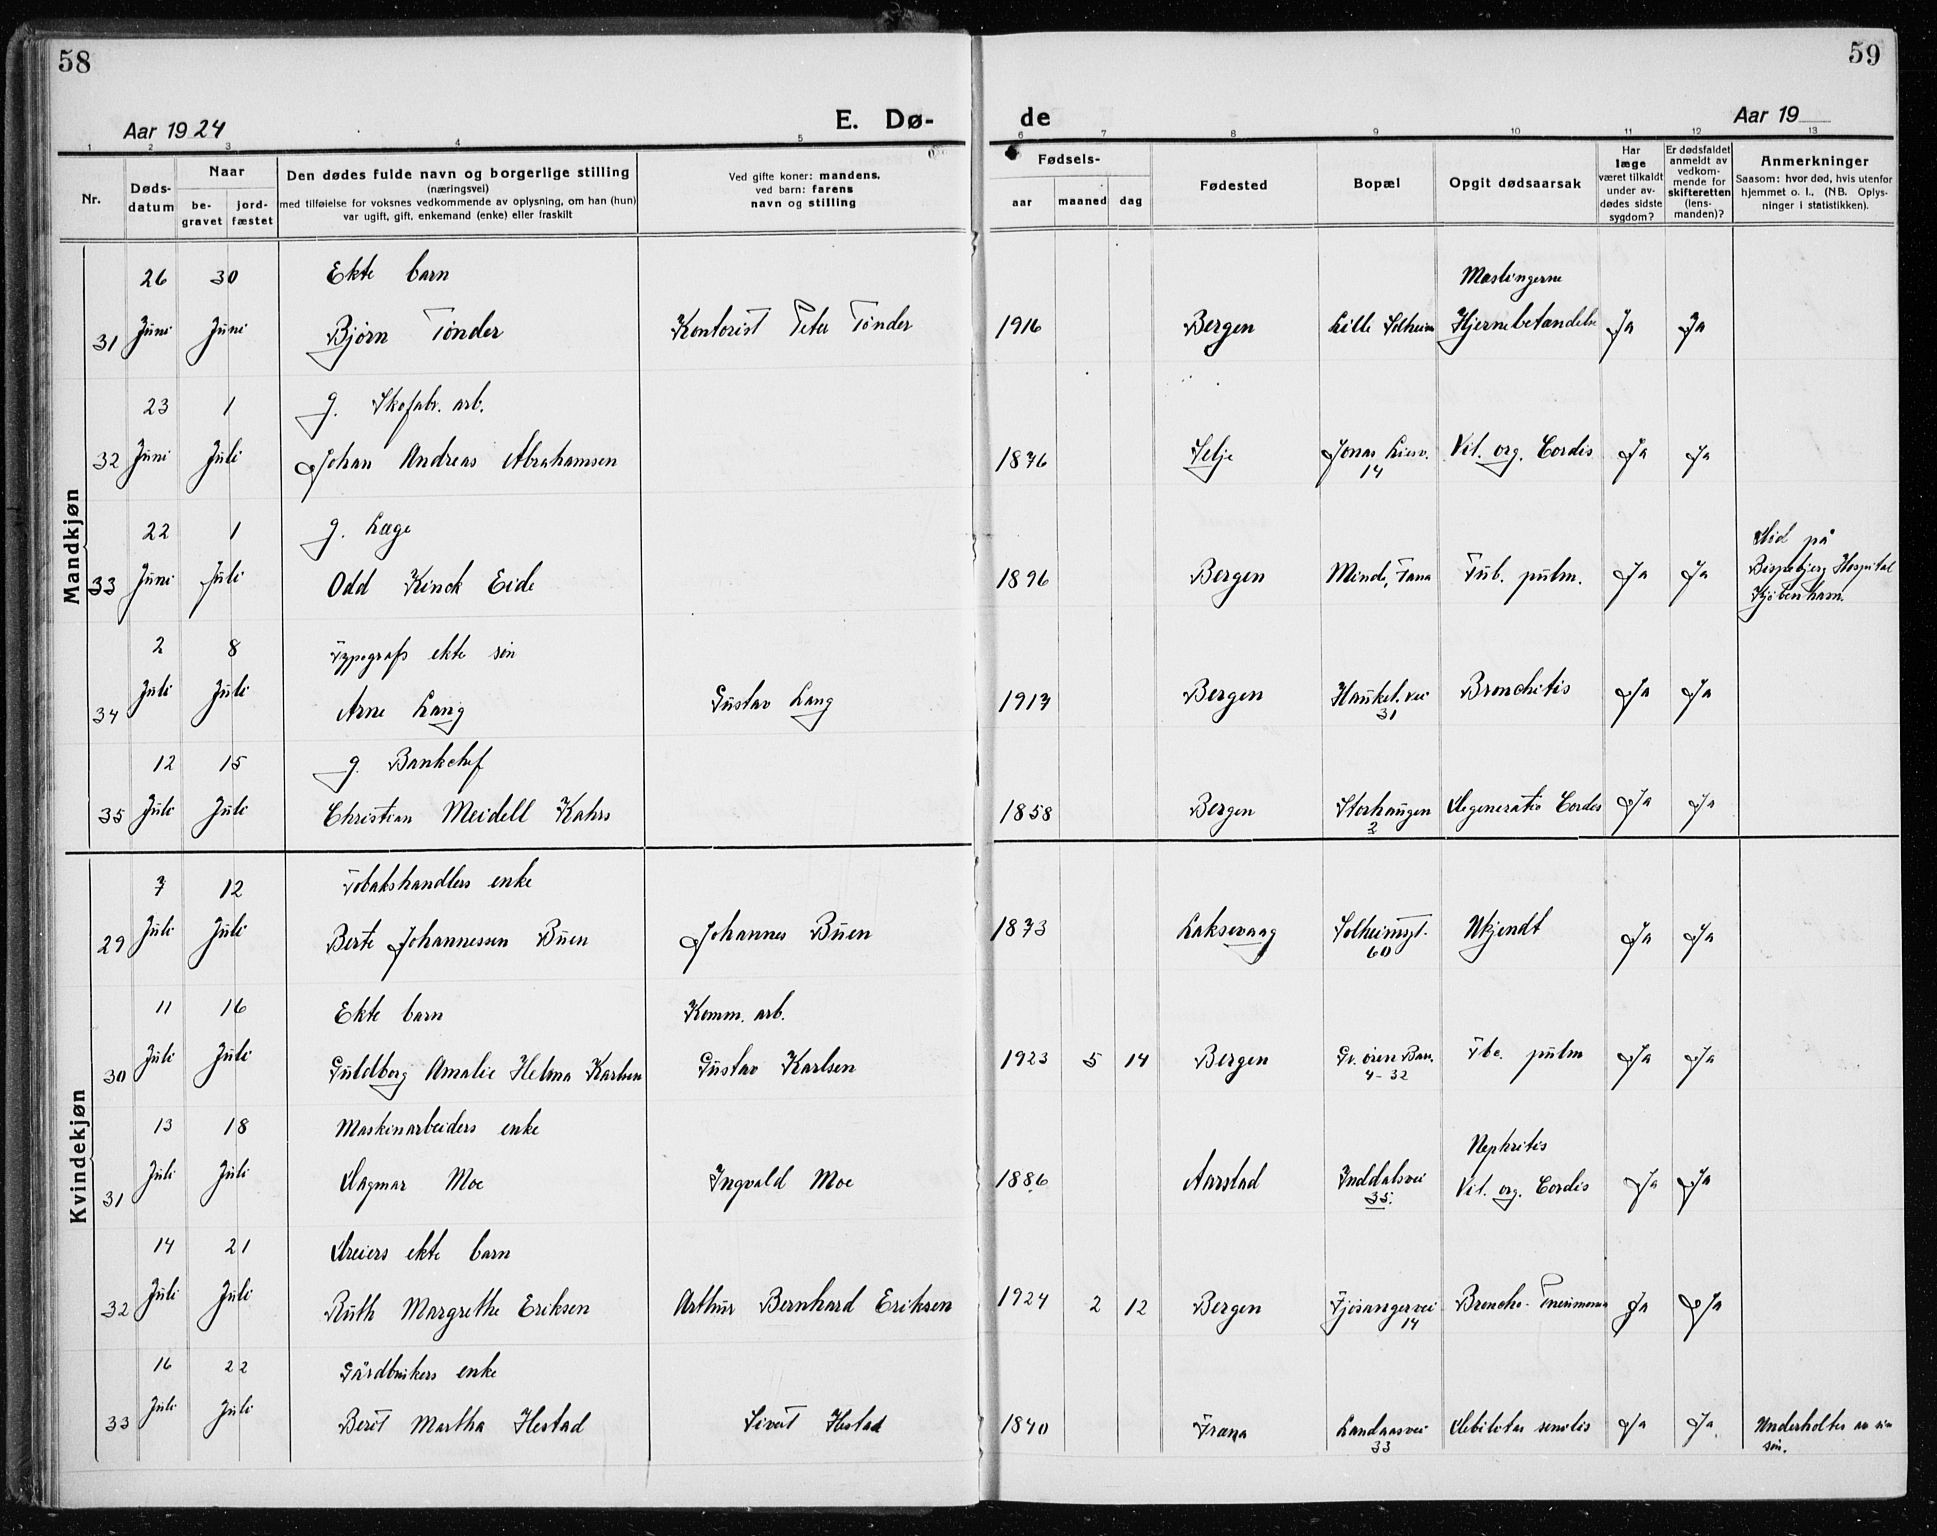 58
59
Aar 1924
E. Dø-
de
Aar 19
1 2 3 4 5 6 7 8 9 10 11 12 13
Nr.
Døds-
datum
Naar
be-
gravet
jord-
fæstet
Den dødes fulde navn og borgerlige stilling
(næringsvei)
med tilføielse for voksnes vedkommende av oplysning, om han (hun)
var ugift, gift, enkemand (enke) eller fraskilt
Ved gifte koner: mandens,
ved barn: farens
navn og stilling
Fødsels-
aar maaned dag
Fødested
Bopæl
Opgit dødsaarsak
Har
læge
været tilkaldt
under av-
dødes sidste
sygdom?
Er dødsfaldet
anmeldt av
vedkom-
mende for
skifteretten
(lens-
manden)?
Anmerkninger
Saasom: hvor død, hvis utenfor
hjemmet o. l., (NB. Oplys-
ninger i statistikken).
Mandkjøn
26 30 Ekte barn Meslingerne
31 Juni Juni Bjørn Tønder Kontorist Peter Tønder 1916 Bergen Lille Solheim Hjernebetændelse Ja Ja
23 1 g. Skofabr. arb.
32 Juni Juli Johan Andreas Abrahamsen 1876 Selje Jonas Liesv. Vit. org. Cordis Ja Ja
14
22 1 g. Læge Død på
33 Juni Juli Odd Kinck Eide 1896 Bergen Minde, Fana Tub. pulm. Ja Ja Bispebjerg Hospital
Kjøbenhavn.
2 8 Typografs ekte søn
34 Juli Juli Arne Lang Gustav Lang 1917 Bergen Haukel. vei Bronchitis Ja Ja
31
12 15 g. Bankchef
35 Juli Juli Christian Meidell Kahrs 1858 Bergen Storhaugen Degeneratio Cordis Ja Ja
2
Kvindekjøn
7 12 Tobakshandlers enke
29 Juli Juli Berte Johannessen Buen Johannes Buen 1873 Laksevaag Solheimsgt. Ukjendt Ja Ja
60
11 16 Ekte barn Komm. arb.
30 Juli Juli Guldborg Amalie Helena Karlsen Gustav Karlsen 1923 5 14 Bergen Gr. ören Bar. Tbc. pulm Ja Ja
4-32
13 18 Maskinarbeiders enke Nephritis
31 Juli Juli Dagmar Moe Ingvald Moe 1886 Aarstad Inddalsvei Vit. org. Cordis Ja Ja
35.
14 21 Dreiers ekte barn
32 Juli Juli Ruth Margrethe Eriksen Arthur Bernhard Eriksen 1924 2 12 Bergen Fjøsangervei Broncho-Pneumonia Ja Ja
14
16 22 Gårdbrukers enke
33 Juli Juli Berit Martha Hestad Sivert Hestad 1840 Fræna Landaasvei Debilitas senilis Ja Ja Underholdtes av sin
33 søn.